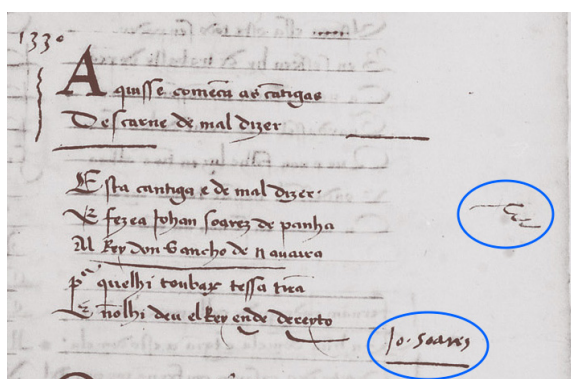 1330
Aquisse começã as cãtigas
Descarne de mal dizer
Esta cantiga e de mal dizer.
E fezea Johan soarez de panha
Al Rey don Sancho de nauarra
pª quelhi troubar tessa tirã
E nõlhi deu elRey ende
Jo. Soares